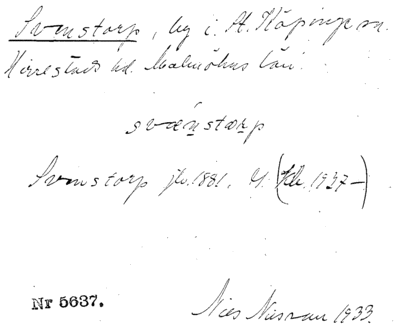 Svenstorp, by i St. Köpinge sn.
Herrestads hd. Malmöhus län.
svæ̀nstærp
Svenstorp jb. 1881. (1937–)
Nr 5637.
Nils Nilsson 1933.